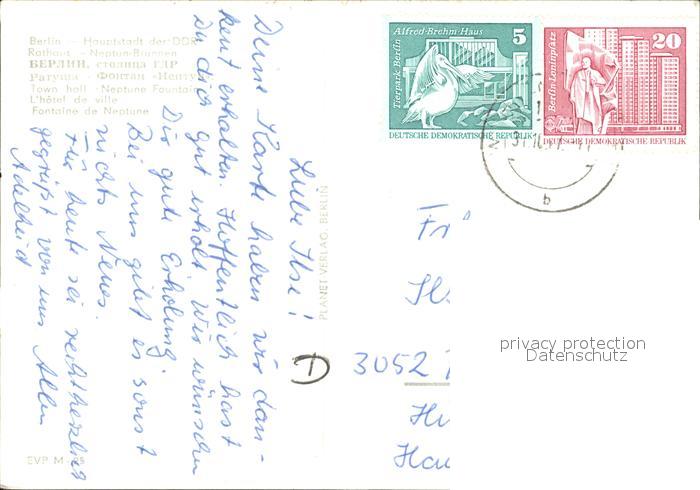 Berlin — Hauptstadt der DDR
Rathaus - Neptun-Brunnen
БЕРЛИН, столица ГДР
Ратуша - Фонтан «Непту
Town hall - Neptune Fountain
L'hôtel de ville
Fontaine de Neptune
Liebe Ilse!
Deine Karte haben wir dan-
kend erhalten. Hoffentlich hast
Du dich gut erholt. Wir wünschen
Dir gute Erholung.
Bei uns gibt es sonst
nichts Neues.
Für heute sei recht herzlich
gegrüßt von uns Allen
Adelheid
EVP M -,25
PLANET-VERLAG, BERLIN
Alfred-Brehm-Haus
5
Tierpark Berlin
DEUTSCHE DEMOKRATISCHE REPUBLIK
20
Berlin · Leninplatz
DEUTSCHE DEMOKRATISCHE REPUBLIK
b
Fr
3052
privacy protection
Datenschutz